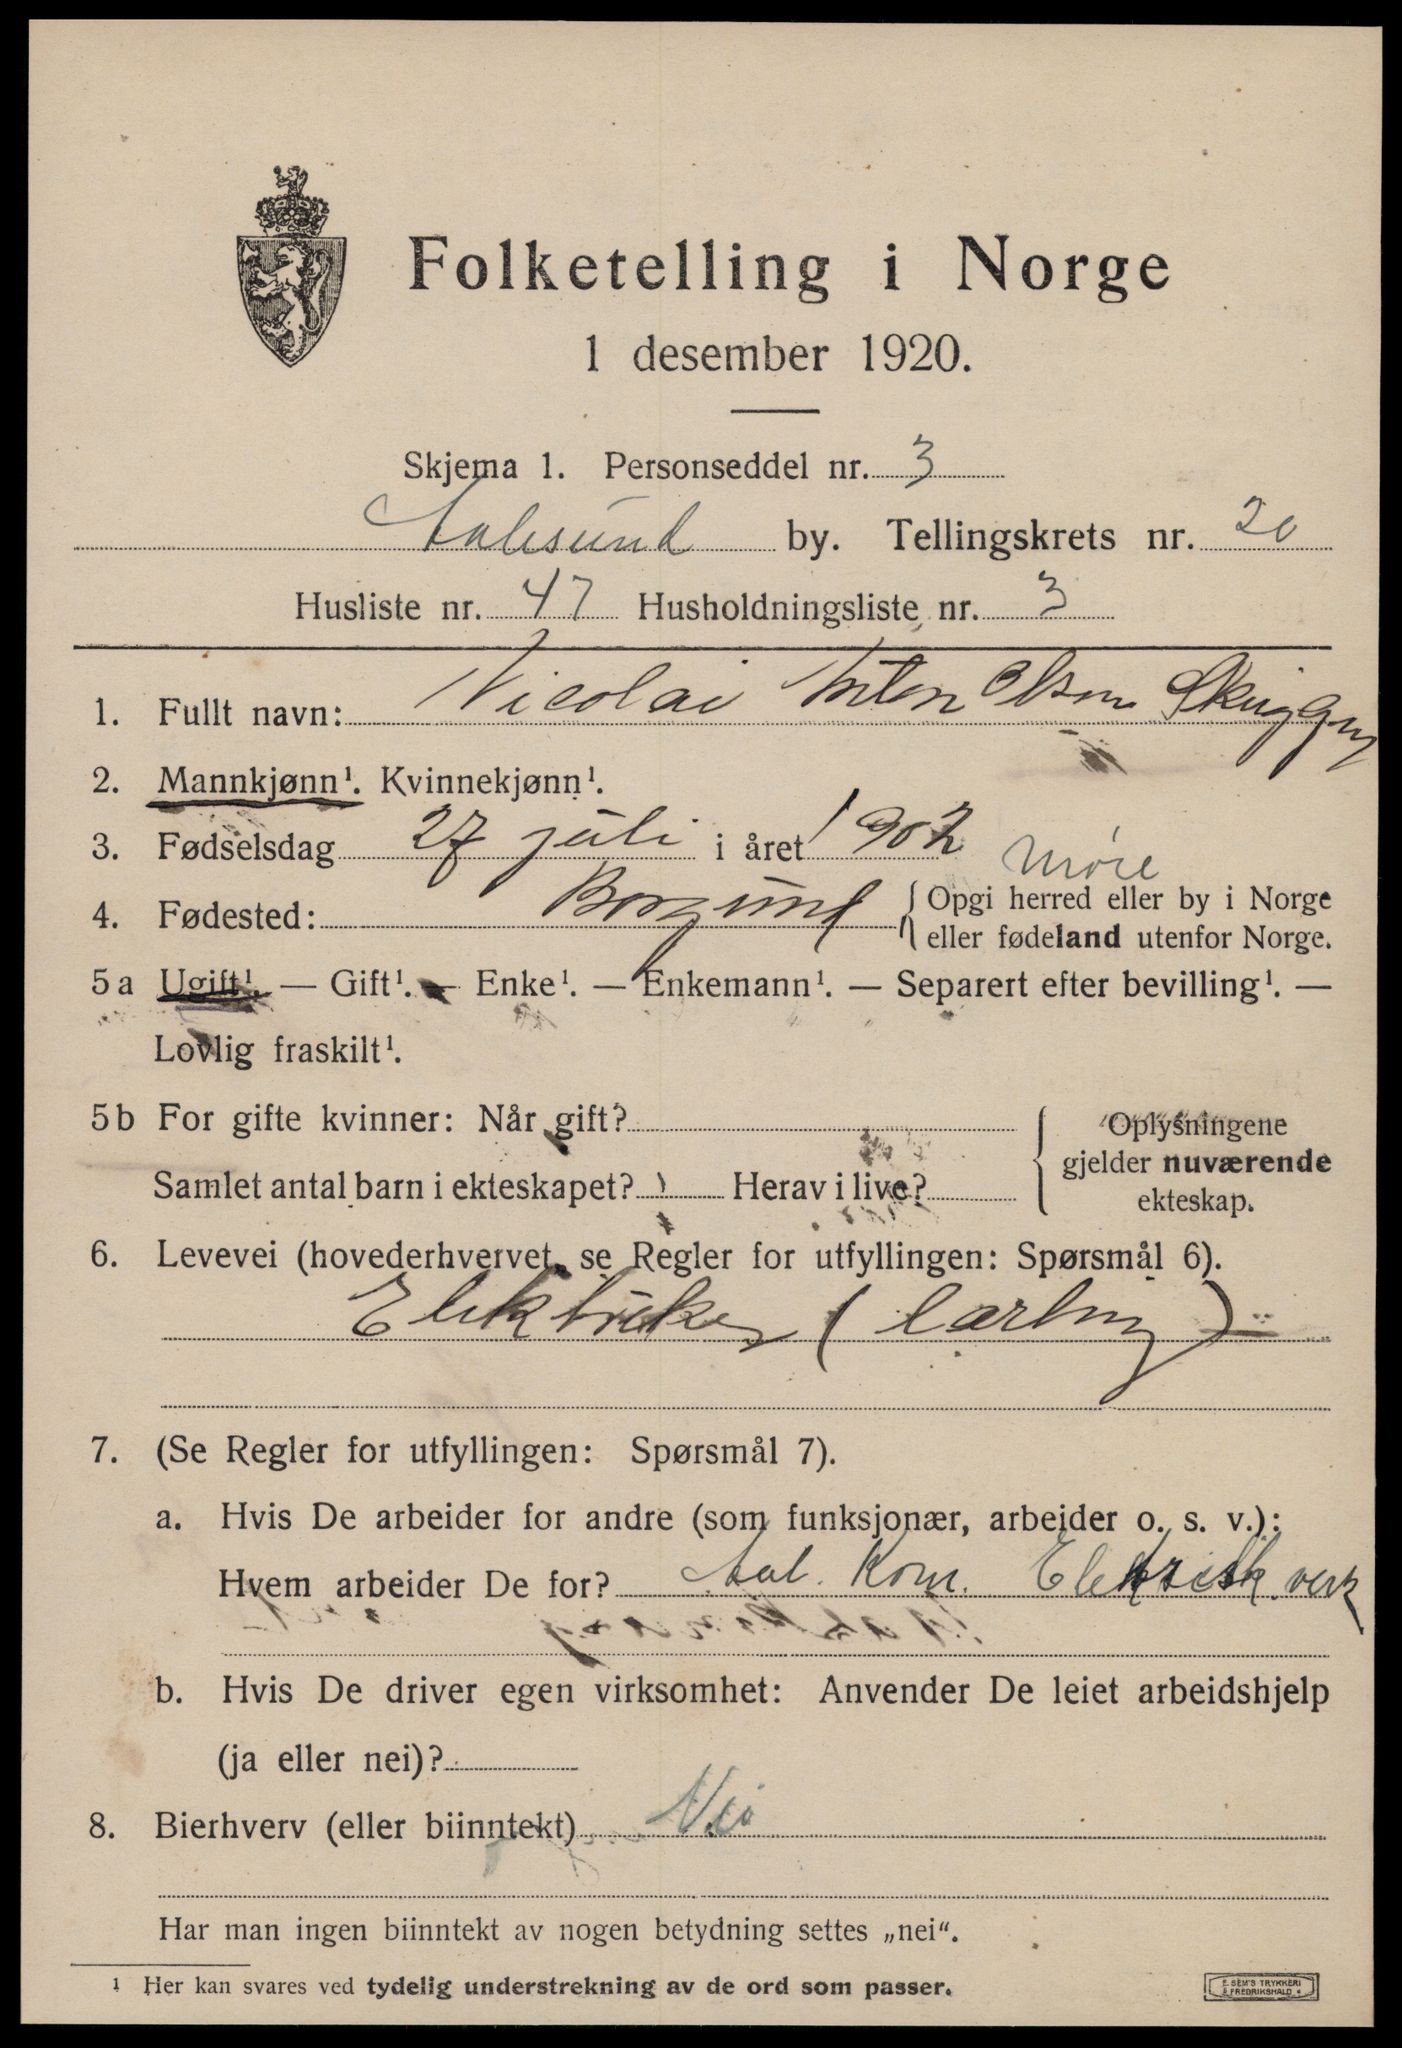 Folketelling i Norge
1 desember 1920.
Skjema 1. Personseddel nr. 3
Aalesund by. Tellingskrets nr. 20
Husliste nr. 47 Husholdningsliste nr. 3
1. Fullt navn: Nicolai Anton Olsen
2. Mannkjønn¹. Kvinnekjønn¹.
3. Fødselsdag 27 juli i året 1902
Møre
4. Fødested: Borgund { Opgi herred eller by i Norge
eller fødeland utenfor Norge.
5a Ugift¹. — Gift¹. — Enke¹. — Enkemann¹. — Separert efter bevilling¹. —
Lovlig fraskilt¹.
5b For gifte kvinner: Når gift? { Oplysningene
gjelder nuværende
ekteskap.
Samlet antal barn i ekteskapet? Herav i live?
6. Levevei (hovederhvervet, se Regler for utfyllingen: Spørsmål 6).
Elektriker (Lærling)
7. (Se Regler for utfyllingen: Spørsmål 7).
a. Hvis De arbeider for andre (som funksjonær, arbeider o. s. v.):
Hvem arbeider De for? Aal. Kom. Elektrisk verk
b. Hvis De driver egen virksomhet: Anvender De leiet arbeidshjelp
(ja eller nei)?
8. Bierhverv (eller biinntekt) Nei
Har man ingen biinntekt av nogen betydning settes „nei“.
¹ Her kan svares ved tydelig understrekning av de ord som passer.
E. SEM'S TRYKKERI
FREDRIKSHALD